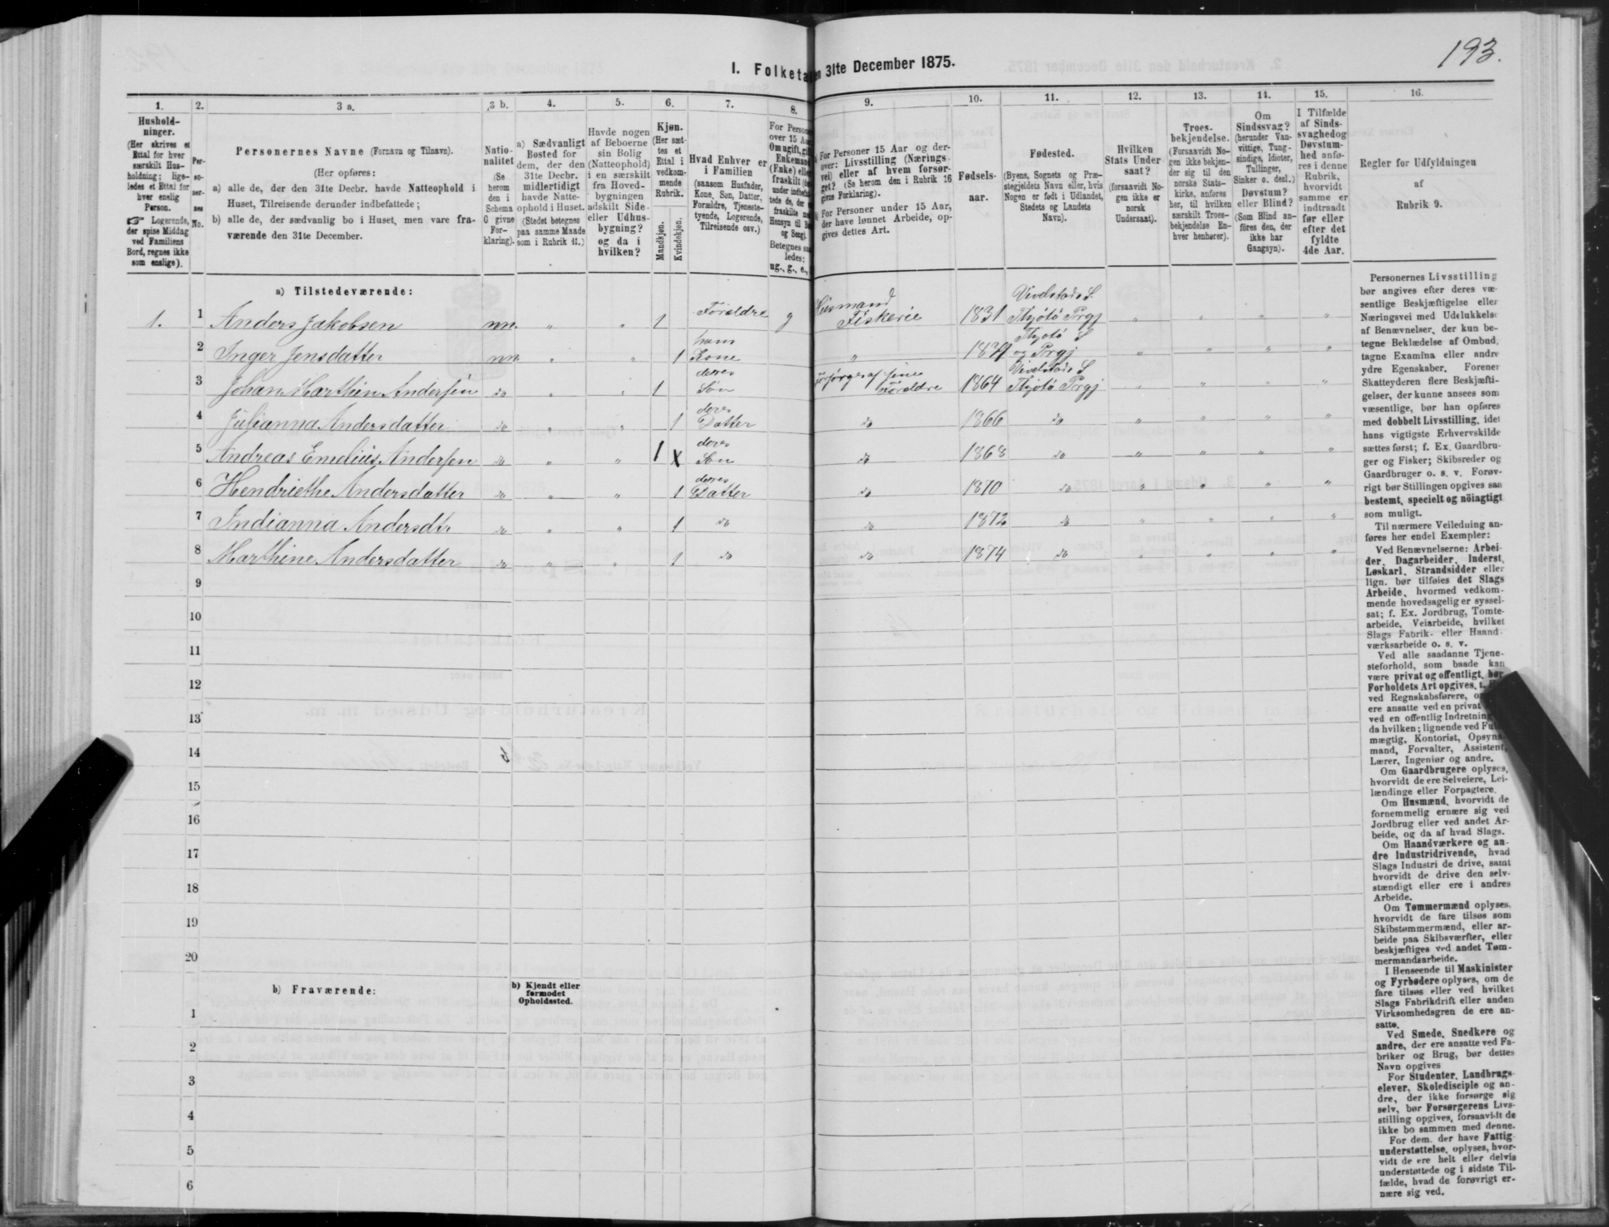 193.
I. Folketa en 31te December 1875.
1. 2. 3 a. 3 b. 4. 5. 6. 7. 8. 9. 10. 11. 12. 13. 14. 15. 16.
Hushold-
ninger.
(Her skrives et
Ettal for hver
særskilt Hus-
holdning; lige-
ledes et Ettal for
hver enslig
Person.
☞ Logerende,
der spise Middag
ved Familiens
Bord, regnes ikke
som enslige).
Per-
so-
ner-
nes
No.
Personernes Navne (Fornavn og Tilnavn).
(Her opføres:
a) alle de, der den 31te Decbr. havde Natteophold i
Huset, Tilreisende derunder indbefattede;
b) alle de, der sædvanlig bo i Huset, men vare fra-
værende den 31te December.
Natio-
nalitet
(Se
herom
den i
Schema
G givne
For-
klaring).
a) Sædvanligt
Bosted for
dem, der den
31te Decbr.
midlertidigt
havde Natte-
ophold i Huset.
(Stedet betegnes
paa samme Maade
som i Rubrik 11.)
Havde nogen
af Beboerne
sin Bolig
(Natteophold)
i en særskilt
fra Hoved-
bygningen
adskilt Side-
eller Udhus-
bygning?
og da i
hvilken?
Kjøn.
(Her sæt-
tes et
Ettal i
vedkom-
mende
Rubrik.
Mandkjøn.
Kvindekjøn.
Hvad Enhver er
i Familien
(saasom Husfader,
Kone, Søn, Datter,
Forældre, Tjeneste-
tyende, Logerende,
Tilreisende osv.)
For Person
over 15 A
Om ugift, gift
Enkemand
(Enke) elle
fraskilt
Betegnes saa
ledes:
ug., g., e.,
For Personer 15 Aar og der-
over: Livsstilling (Nærings-
vei) eller af hvem forsør-
get? (Se herom den i Rubrik 16
givne Forklaring).
For Personer under 15 Aar,
der have lønnet Arbeide, op-
gives dettes Art.
Fødsels-
aar.
Fødested.
(Byens, Sognets og Præ-
stegjeldets Navn eller, hvis
Nogen er født i Udlandet,
Stedets og Landets
Navn).
Hvilken
Stats Under-
saat?
(forsaavidt No-
gen ikke er
norsk
Undersaat).
Troes-
bekjendelse.
(Forsaavidt No-
gen ikke bekjen-
der sig til den
norske Stats-
kirke, anføres
her, til hvilken
særskilt Troes-
bekjendelse En-
hver henhører).
Om
Sindssvag?
(herunder Van-
vittige, Tung-
sindige, Idioter,
Tullinger,
Sinker o. desl.)
Døvstum?
eller Blind?
(Som Blind an-
føres den, der
ikke har
Gangsyn).
I Tilfælde
af Sinds-
svaghed og
Døvstum-
hed anfø-
res i denne
Rubrik,
hvorvidt
samme er
indtraadt
før eller
efter det
fyldte
4de Aar.
Regler for Udfyldningen
af
Rubrik 9.
a) Tilstedeværende:
1. 1 Anders Jakobsen nn. " " 1 Forældre g Huusmand Fiskerie 1831 Vivelstads S. Thjøtø Prgj " " " "
2 Inger Jensdatter nn " " 1 hans Kone " 1839 Thjøtø S og Prgj " " " "
3 Johan Marthin Andersen do " " 1 deres Søn forsørges af sine Forældre 1864 Vivelstads S Thjøtø Prgj " " " "
4 Julianna Andersdatter do " " 1 deres Datter do 1866 do " " " "
5 Andreas Emelius Andersen do " " 1 x deres Søn do 1868 do " " " "
6 Hendriethe Andersdatter do " " 1 deres Datter do 1870 do " " " "
7 Indianna Andersdtr do " " 1 do do 1872 do " " " "
8 Marthine Andersdatter do " " 1 do do 1874 do " " " "
9
10
11
12
13
14
15
16
17
18
19
20
b) Fraværende:
b) Kjendt eller
formodet
Opholdssted.
1
2
3
4
5
6
Personernes Livsstilling
bør angives efter deres væ-
sentlige Beskjæftigelse eller
Næringsvei med Udelukkelse
af Benævnelser, der kun be-
tegne Beklædelse af Ombud,
tagne Examina eller andre
ydre Egenskaber. Forener
Skatteyderen flere Beskjæfti-
gelser, der kunne ansees som
væsentlige, bør han opføres
med dobbelt Livsstilling, idet
hans vigtigste Erhvervskilde
sættes først; f. Ex. Gaardbru-
ger og Fisker; Skibsreder og
Gaardbruger o. s. v. Forøv-
rigt bør Stillingen opgives saa
bestemt, specielt og nöiagtigt
som muligt.
Til nærmere Veiledning an-
føres her endel Exempler:
Ved Benævnelserne: Arbei-
der, Dagarbeider, Inderst,
Løskarl, Strandsidder eller
lign. bør tilføies det Slags
Arbeide, hvormed vedkom-
mende hovedsagelig er syssel-
sat; f. Ex. Jordbrug, Tomte-
arbeide, Veiarbeide, hvilket
Slags Fabrik- eller Haand-
værksarbeide o. s. v.
Ved alle saadanne Tjene-
steforhold, som baade kan
være privat og offentligt, bør
Forholdets Art opgives,
ved Regnskabsførere,
ere ansatte ved en privat
ved en offentlig Indretning
da hvilken; lignende ved Ful
mægtig, Kontorist, Opsyns-
mand, Forvalter, Assistent,
Lærer, Ingeniør og andre.
Om Gaardbrugere oplyses,
hvorvidt de ere Selveiere, Lei-
lændinge eller Forpagtere.
Om Husmænd, hvorvidt de
fornemmelig ernære sig ved
Jordbrug eller ved andet Ar-
beide, og da af hvad Slags.
Om Haandværkere og an-
dre Industridrivende, hvad
Slags Industri de drive, samt
hvorvidt de drive den selv-
stændigt eller ere i andres
Arbeide.
Om Tømmermænd oplyses,
hvorvidt de fare tilsøs som
Skibstømmermænd, eller ar-
beide paa Skibsværfter, eller
beskjæftiges ved andet Tøm-
mermandsarbeide.
I Henseende til Maskinister
og Fyrbødere oplyses, om de
fare tilsøs eller ved hvilket
Slags Fabrikdrift eller anden
Virksomhedsgren de ere an-
satte.
Ved Smede, Snedkere og
andre, der ere ansatte ved Fa-
briker og Brug, bør dettes
Navn opgives
For Studenter, Landbrugs-
elever, Skoledisciple og an-
dre, der ikke forsørge sig
selv, bør Forsørgerens Livs-
stilling opgives, forsaavidt de
ikke bo sammen med denne.
For dem, der have Fattig-
understøttelse, oplyses, hvor-
vidt de ere helt eller delvis
understøttede og i sidste Til-
fælde, hvad de forøvrigt er-
nære sig ved.